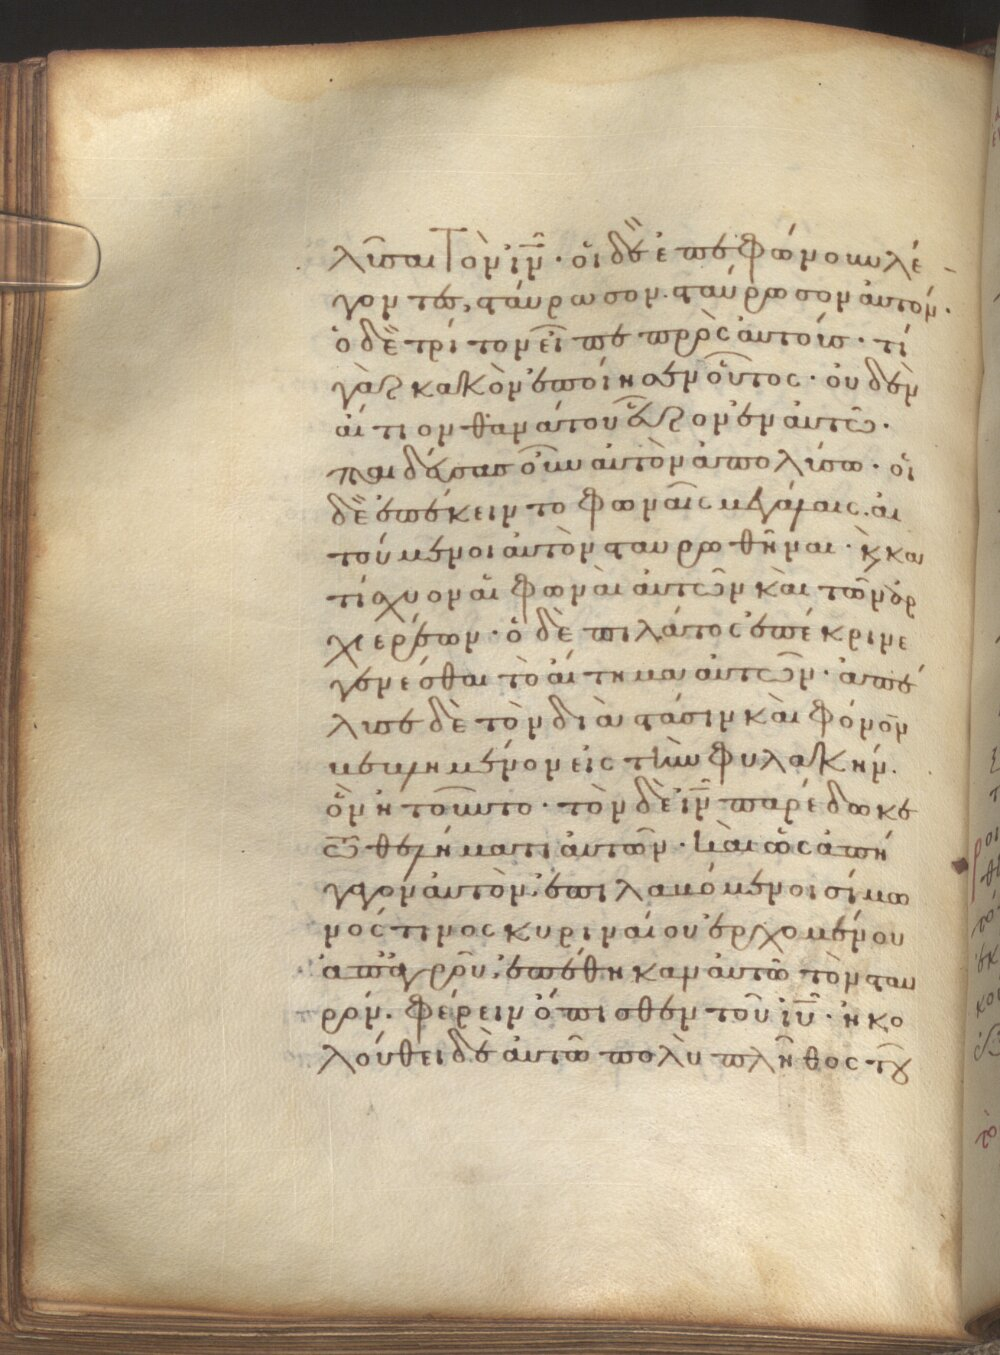 λῦσαι τὸν ἰν̄· οἱ δὲ ἐπεφώνουν λέ
γοντες, σταύρωσον. σταύρωσον αὐτόν·
ὁ δὲ τρίτον εἶπε πρὸς αὐτούς· τί
γὰρ κακὸν ἐποίησεν οὗτος· οὐδὲν
αἴτιον θανάτου εὗρον ἐν αὐτῶ·
παιδεύσας οὖν αὐτὸν ἀπολύσω· οἱ
δὲ ἐπέκειντο φωναῖς μεγάλαις. αἰ
τούμενοι αὐτὸν σταυρωθῆναι· κ̀ κα
τίσχυον αἱ φωναὶ αὐτῶν καὶ τῶν ἀρ
χιερέων· ὁ δὲ πιλάτος ἐπέκρινε
γενέσθαι τὸ αἴτημα αὐτῶν· ἀπέ
λυσε δὲ τὸν διὰ στάσιν καὶ φόνον
βεβλημένον εἰς τὴν φυλακήν.
ὃν ἠτοῦντο· τὸν δὲ ἰν̄ παρέδωκε
τῶ θελήματι αὐτῶν· καὶ ὡς ἀπή
γαγον αὐτὸν, ἐπιλαβόμενοι σίμω
νός τινος κυριναίου ἐρχομένου
ἀπ' ἀγροῦ, ἐπέθηκαν αὐτῶ τὸν σταυ
ρόν. φέρειν ὄπισθεν τοῦ ἰῡ· ἠκο
λούθει δὲ αὐτῶ πολὺ πλῆθος τοῦ